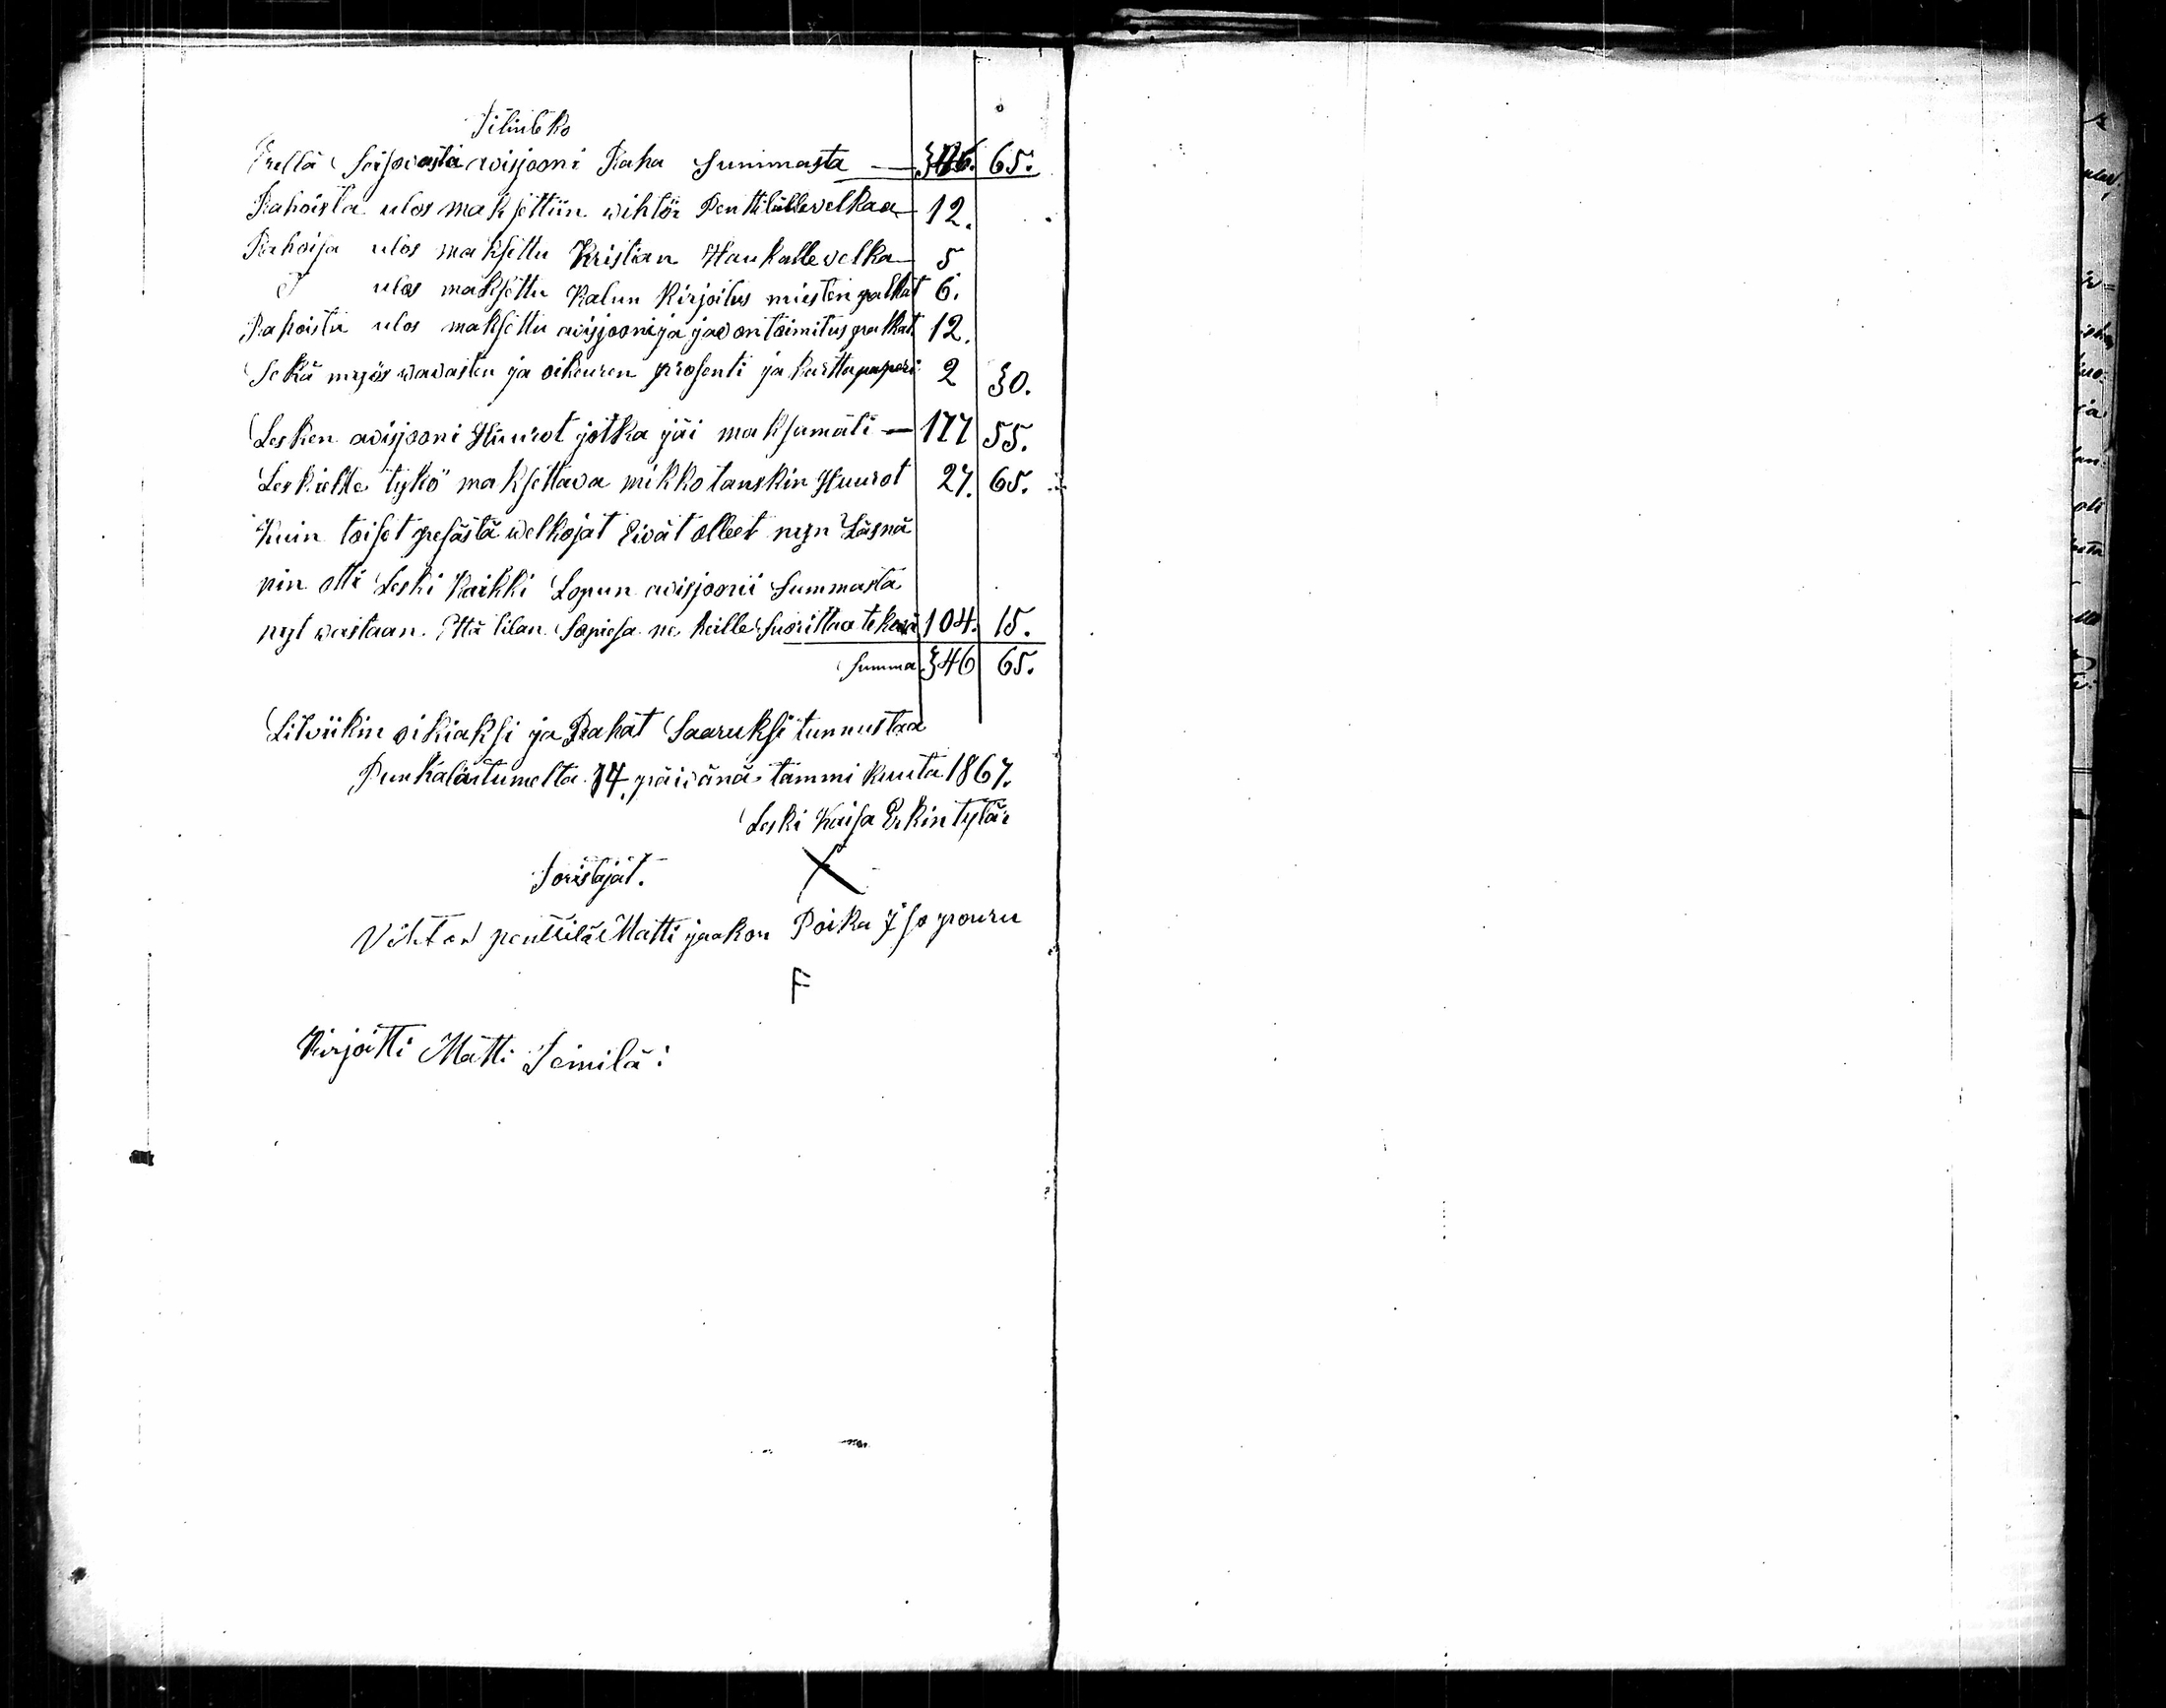 Tilinteko
Erellä Seisovasta avisjooni Raha Summasta — 346. 65.
Rahoista ulos maksettiin wihtör Penttilälle velkaa — 12.
Rahoisa ulos maksettu Kristian Haukalle velka — 5
ulos maksettu Kalun Kirjoitus miesten palkat 6.
Rahoista ulos maksettu avisjooni ja javon toimitus palkat 12.
Sekä myös vavasten ja oikeuren prosenti ja karttapaperi 2 30.
Lesken avisjooni Huurot jotka jäi maksamati — 177 55.
Leskielte tykö maksettava mikko tanskin Huurot 27. 65.
Kuin toiset pesästä welkojat Eivät olleet nyn Läsnä
nin otti Leski Kaikki Lopun avisjooni Summasta
nyt vastaan. Että tilan Sopiesa ne heille Suorittaa tekevä 104. 15.
Summa 346 65.
Litviikin oikiaksi ja Rahat Saaruksi tunnustaa
Punkalaitumelta 14. päivänä tammi kuuta 1867.
Leski Kaisa Erkin tytär
X
Toristajat.
Vihtor penttilä Matti jaakon Poika Iso pouru
F
Kirjoitti Matti Seimilä: